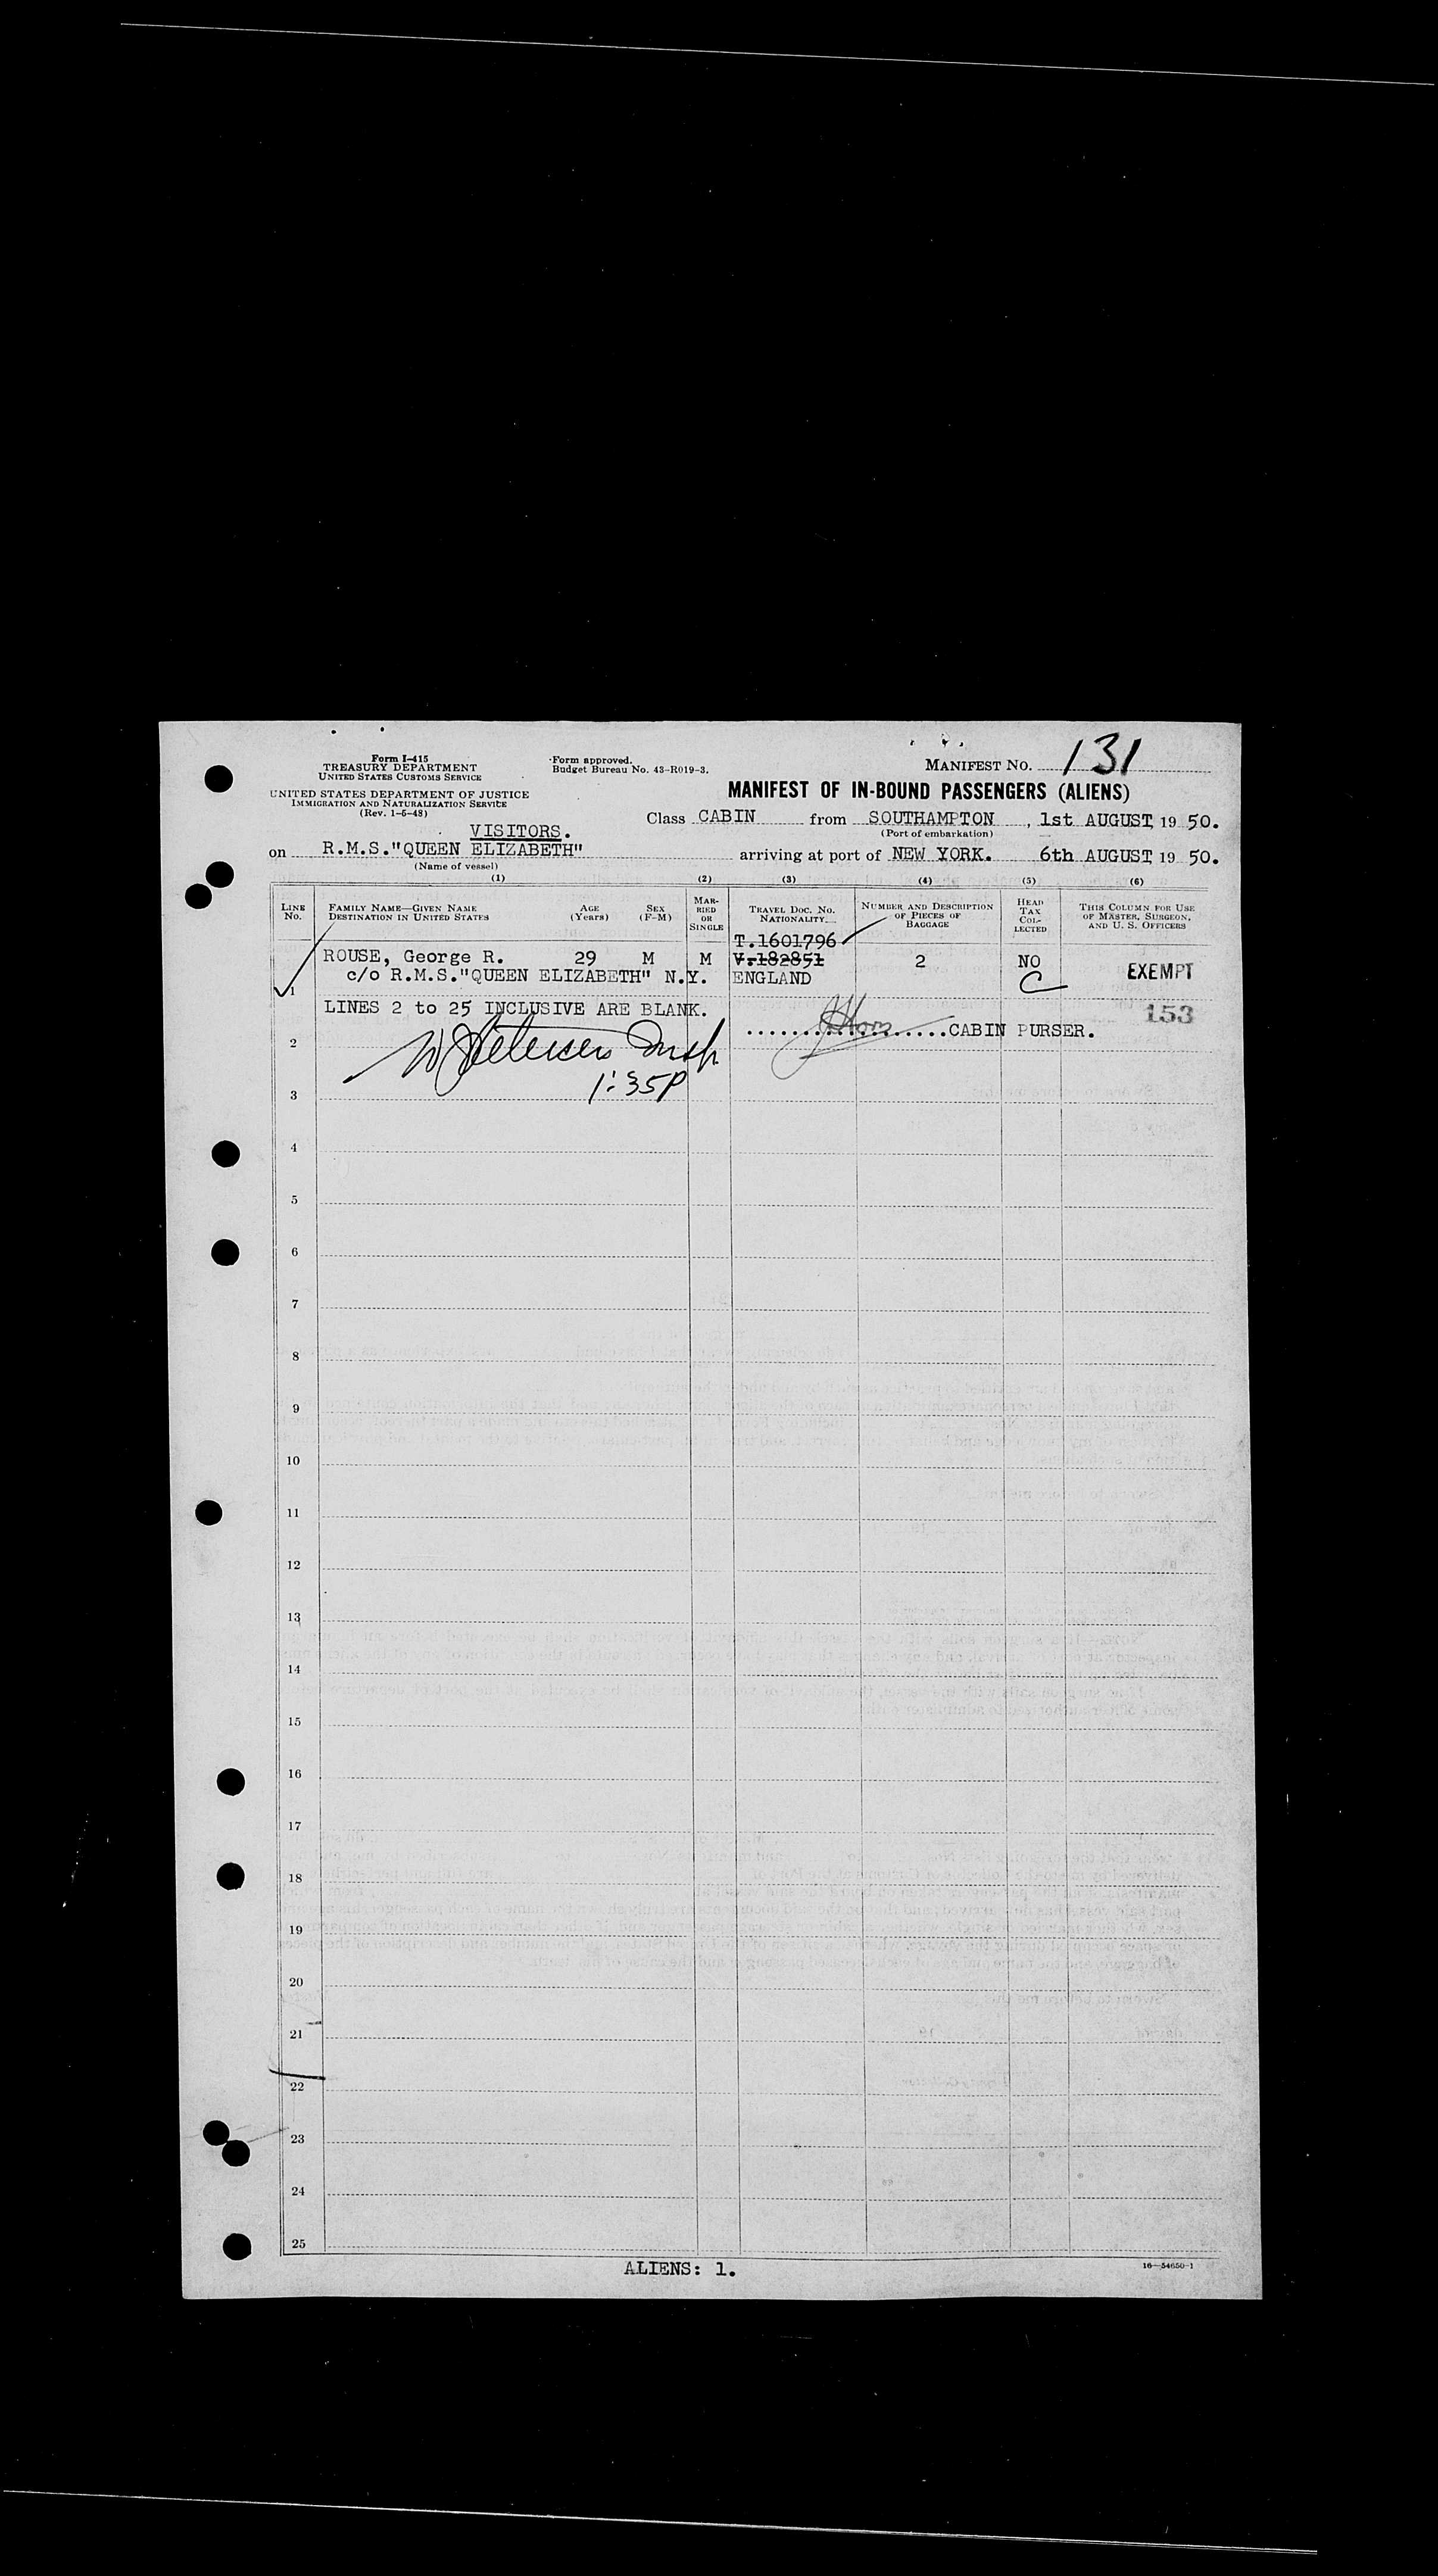 Form I-415
TREASURY DEPARTMENT
UNITED STATES CUSTOMS SERVICE
Form approved.
Budget Bureau No. 43-R019-3.
MANIFEST NO. 131
UNITED STATES DEPARTMENT OF JUSTICE
IMMIGRATION AND NATURALIZATION SERVICE
(Rev. 1-6-48)
MANIFEST OF IN-BOUND PASSENGERS (ALIENS)
VISITORS.
Class CABIN from SOUTHAMPTON, 1st AUGUST, 19 50.
(Port of embarkation)
on R.M.S."QUEEN ELIZABETH" arriving at port of NEW YORK. 6th AUGUST 19 50.
(Name of vessel)
(1) (2) (3) (4) (5) (6)
LINE NO.
FAMILY NAME—GIVEN NAME
DESTINATION IN UNITED STATES
AGE
(Years)
SEX
(F-M)
MAR-
RIED
OR
SINGLE
TRAVEL DOC. NO.
NATIONALITY
NUMBER AND DESCRIPTION
OF PIECES OF
BAGGAGE
HEAD
TAX
COL-
LECTED
THIS COLUMN FOR USE
OF MASTER, SURGEON,
AND U. S. OFFICERS
T.1601796
ROUSE, George R. 29 M M V.182851 2 NO EXEMPT
c/o R.M.S."QUEEN ELIZABETH" N.Y. ENGLAND C
1
LINES 2 to 25 INCLUSIVE ARE BLANK. 153
....................CABIN PURSER.
2
1:35P
3
4
5
6
7
8
9
10
11
12
13
14
15
16
17
18
19
20
21
22
23
24
25
ALIENS: 1.
16—54650-1